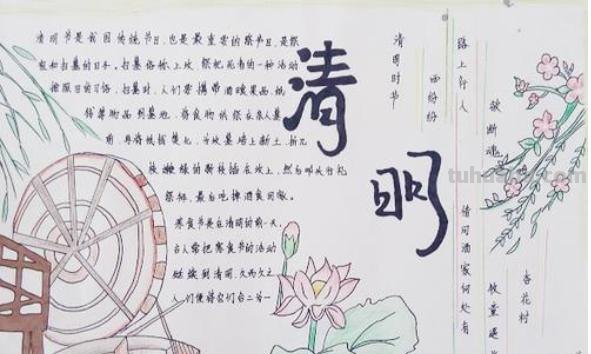 清明节是我国传统节日,也是最重要的祭节日,是祭
祖和扫墓的日子。扫墓俗称上坟,祭祀死者的一种活动
按照旧的习俗,扫墓时,人们要携带酒食果品、纸
钱等物品到墓地,将食物供祭在亲人墓
前,再将纸钱焚化,为坟墓培上新土,折几
枝嫩绿的新枝插在坟上,然后叩头行礼
祭拜,最后吃掉酒食回家。
寒食节是在清明的前一天,
古人常把寒食节的活动
延续到清明,久而久之
人们便将它们合二为一
清明
清明时节
雨纷纷
路上行人
欲断魂
借问酒家何处有
牧童遥
杏花村
tuhu